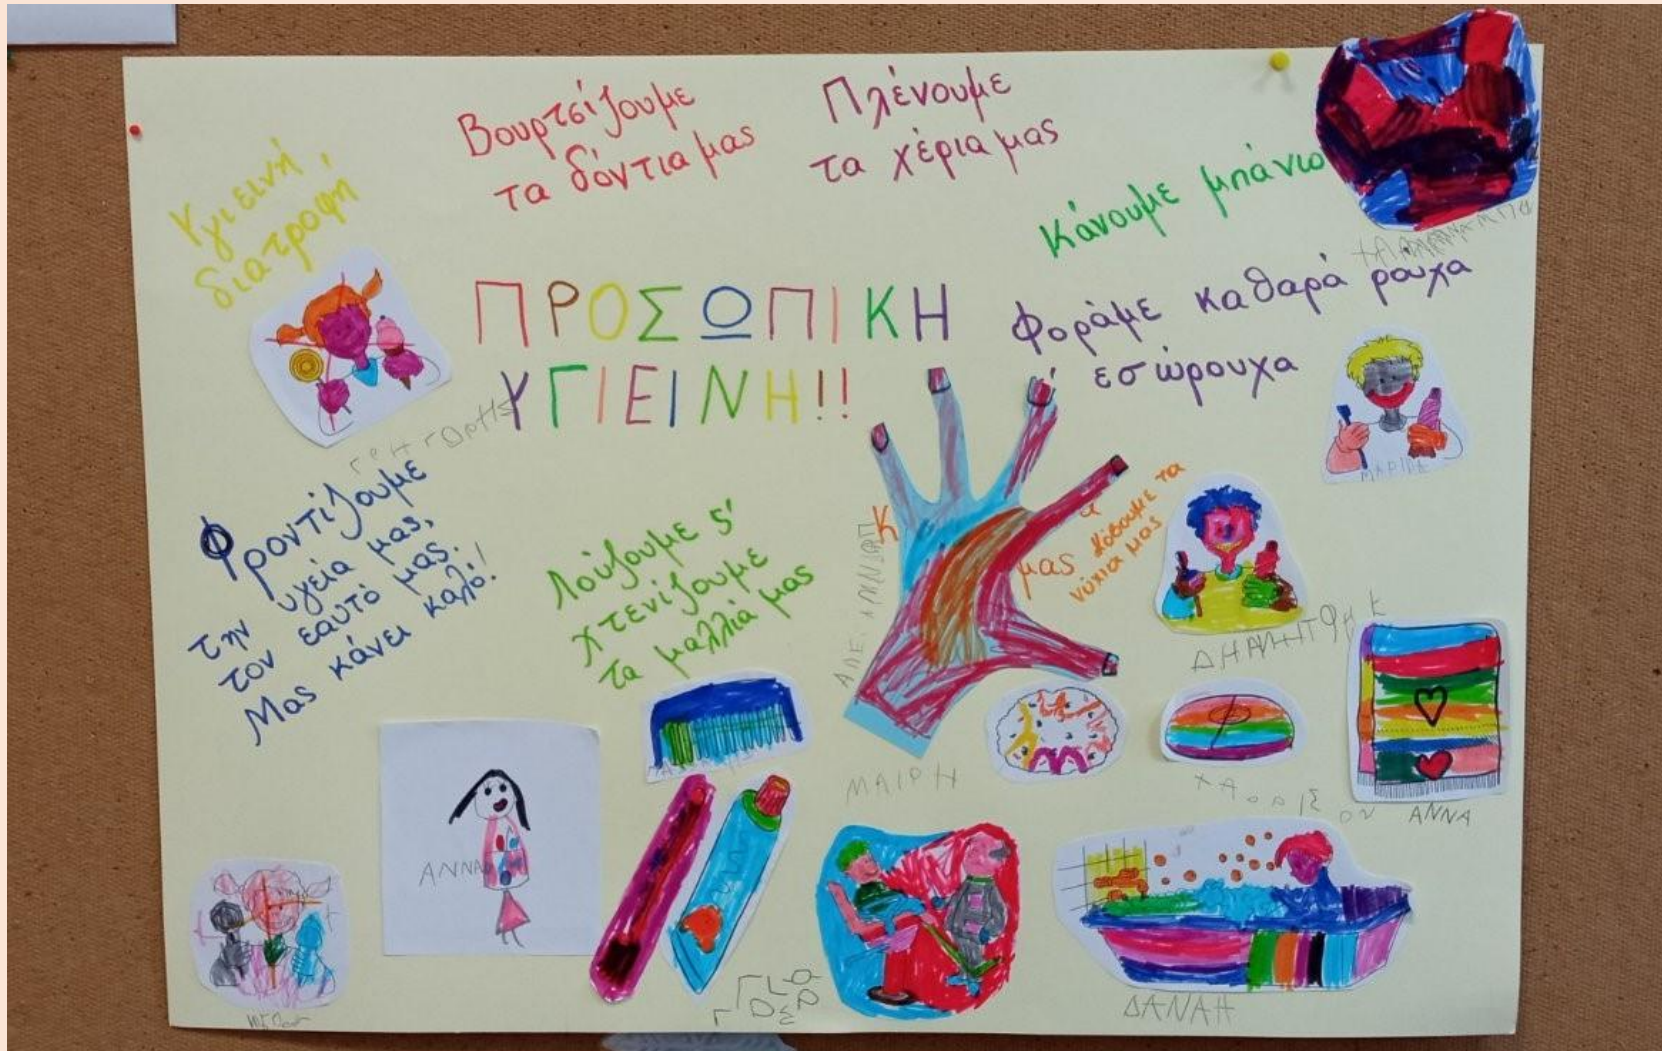 Υγιεινή
διατροφή
Βουρτσίζουμε
τα δόντια μας
Πλένουμε
τα χέρια μας
Κάνουμε μπάνιο
ΠΡΟΣΩΠΙΚΗ
ΥΓΙΕΙΝΗ!!
Φοράμε καθαρά ρούχα
ς' εσώρουχα
ΓΡΗΓΟΡΗΣ
ΜΑΡΙΑ
Φροντίζουμε
την υγεία μας,
τον εαυτό μας.
Μας κάνει καλό!
Λούζουμε ς'
χτενίζουμε
τα μαλλιά μας
Κ
μας
κόβουμε τα
νύχια μας
ΜΑΙΡΗ
ΑΝΝΑ
ΑΝΝΑ
ΔΑΝΑΗ